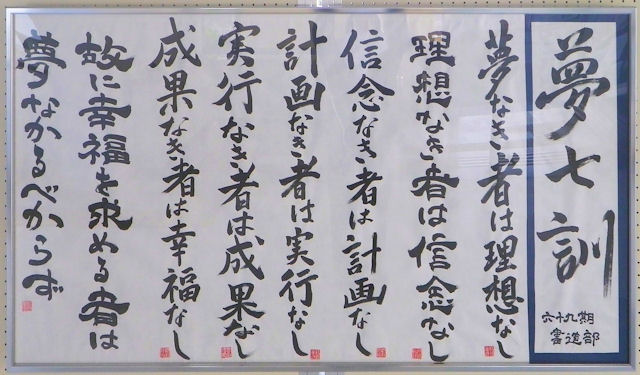 夢七訓
六十九期
書道部
夢なき者は理想なし
理想なき者は信念なし
信念なき者は計画なし
計画なき者は実行なし
実行なき者は成果なし
成果なき者は幸福なし
故に幸福を求める者は
夢なかるべからず